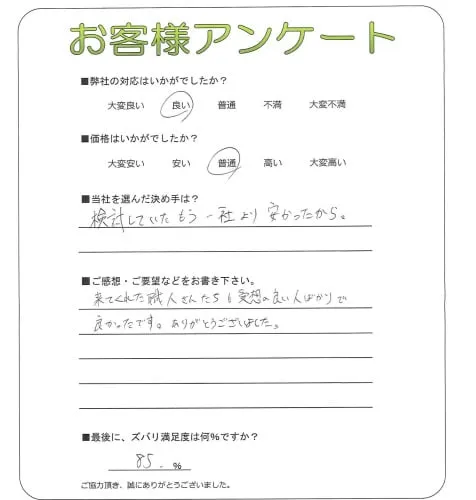 お客様アンケート
■弊社の対応はいかがでしたか？
大変良い 良い 普通 不満 大変不満
■価格はいかがでしたか？
大変安い 安い 普通 高い 大変高い
■当社を選んだ決め手は？
検討していたもう一社より安かったから。
■ご感想・ご要望などをお書き下さい。
来てくれた職人さんたちも愛想の良い人ばかりで
良かったです。ありがとうございました。
■最後に、ズバリ満足度は何%ですか？
85. %
ご協力頂き、誠にありがとうございました。